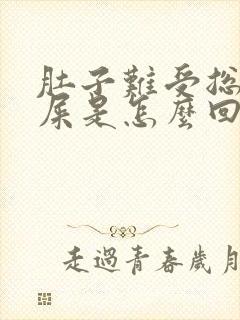 肚子難受总
屎是怎麼回
走過青春歲月